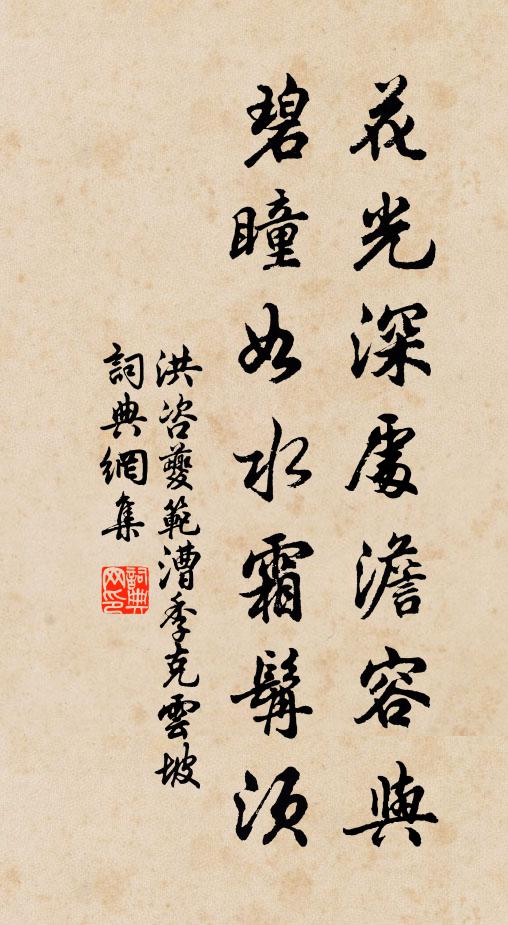 花光深處澹容與
碧瞳如水霜髯須
洪咨夔範漕季克雲坡
詞典網集
詞典網印